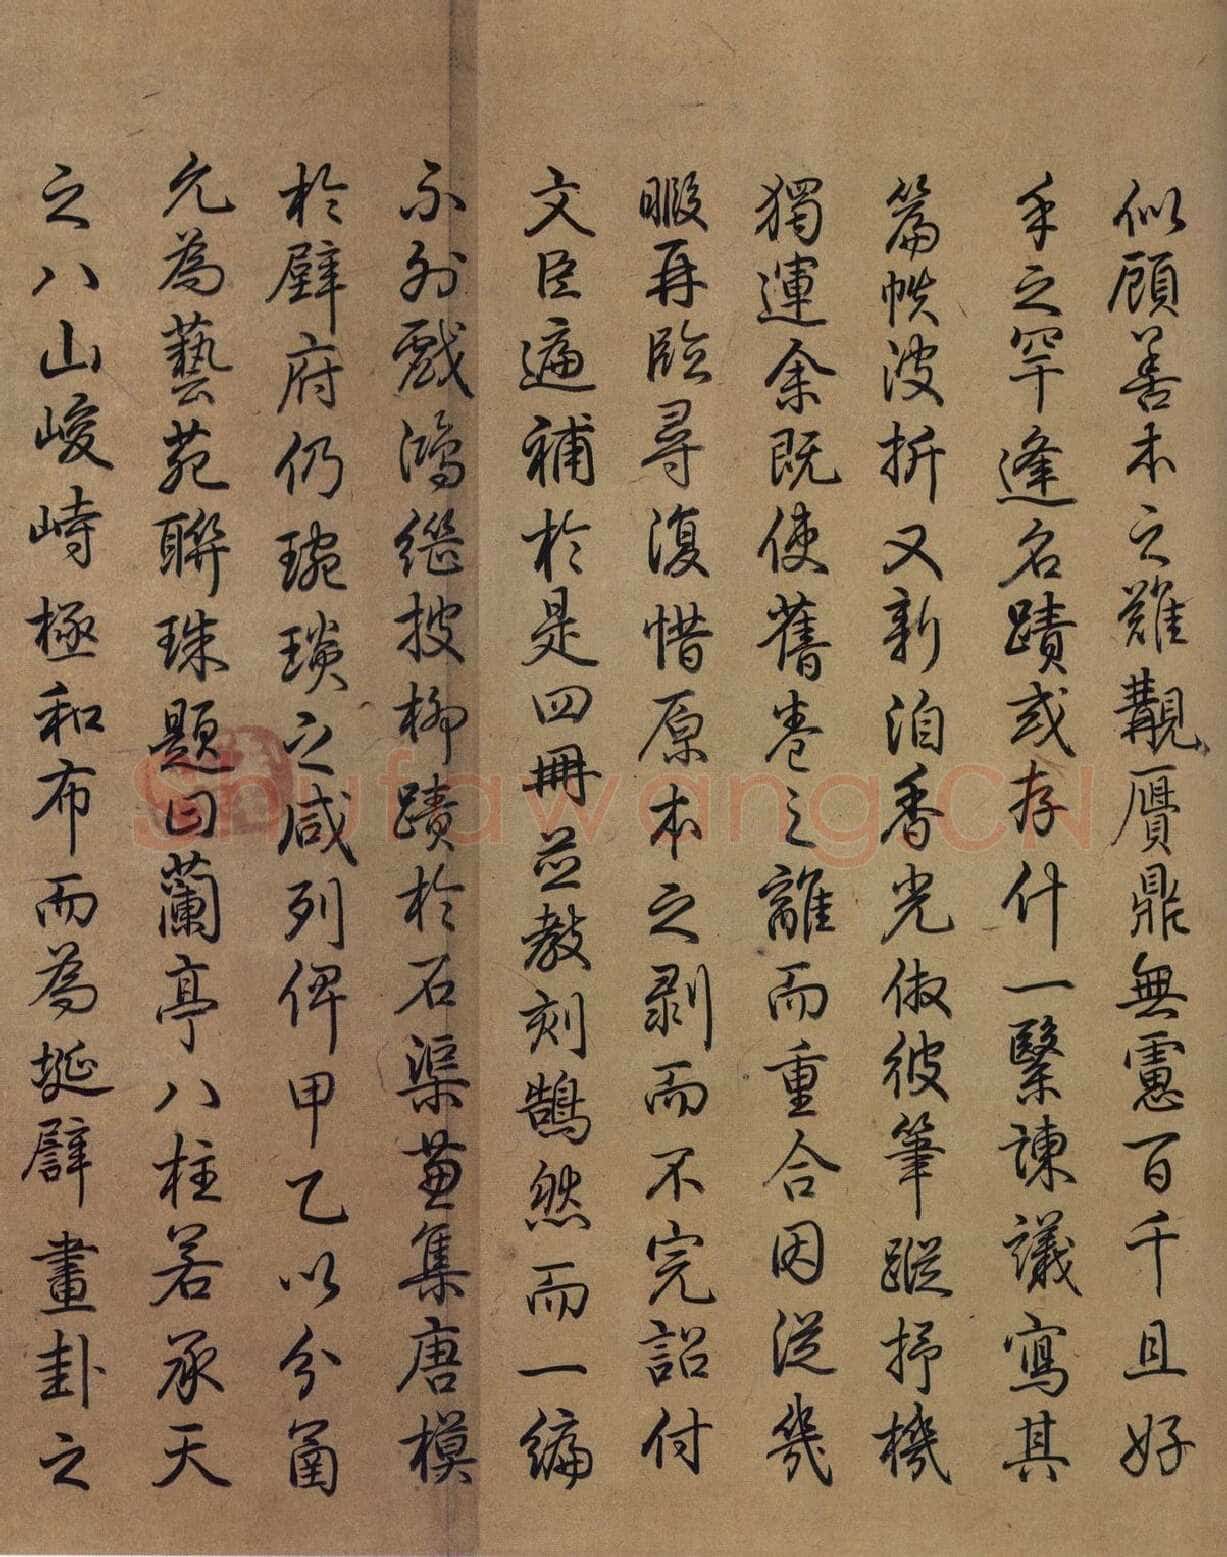 似顧善本之難覯贋鼎無慮百千且好
手之罕逢名蹟或存什一繄諫議寫其
篇帙波折又新洎香光倣彼筆蹤抒機
獨運余既使舊卷之離而重合因從幾
暇再臨尋復惜原本之剥而不完詔付
文臣遍補於是四冊並教刻鵠然而一編
不列戲鴻繼披柳蹟於石渠兼集唐模
於壁府仍琬琰之咸列俾甲乙以分函
允為藝苑聯珠題曰蘭亭八柱若承天
之八山峻峙極和布而為挻譬畫卦之
Shufawang.CN